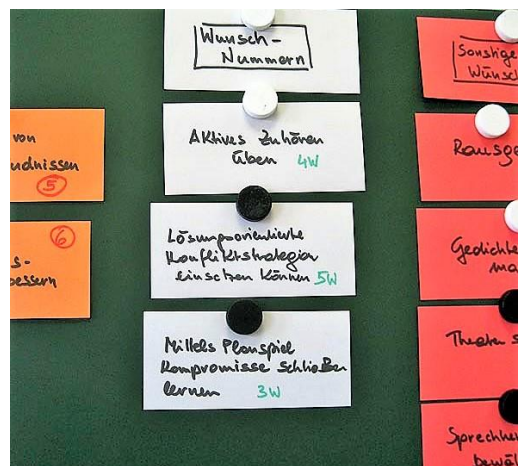 von
udnissen
5
6
s-
bessern
Wunsch-
Nummern
Aktives Zuhören
üben 4W
Lösungsorientierte
Konfliktstrategien
einsetzen können 5W
Mittels Planspiel
Kompromisse schließen
lernen 3W
Sonstige
Wünsch
Rausge
Gedichte
ma
Theater s
Sprechher
bewäl